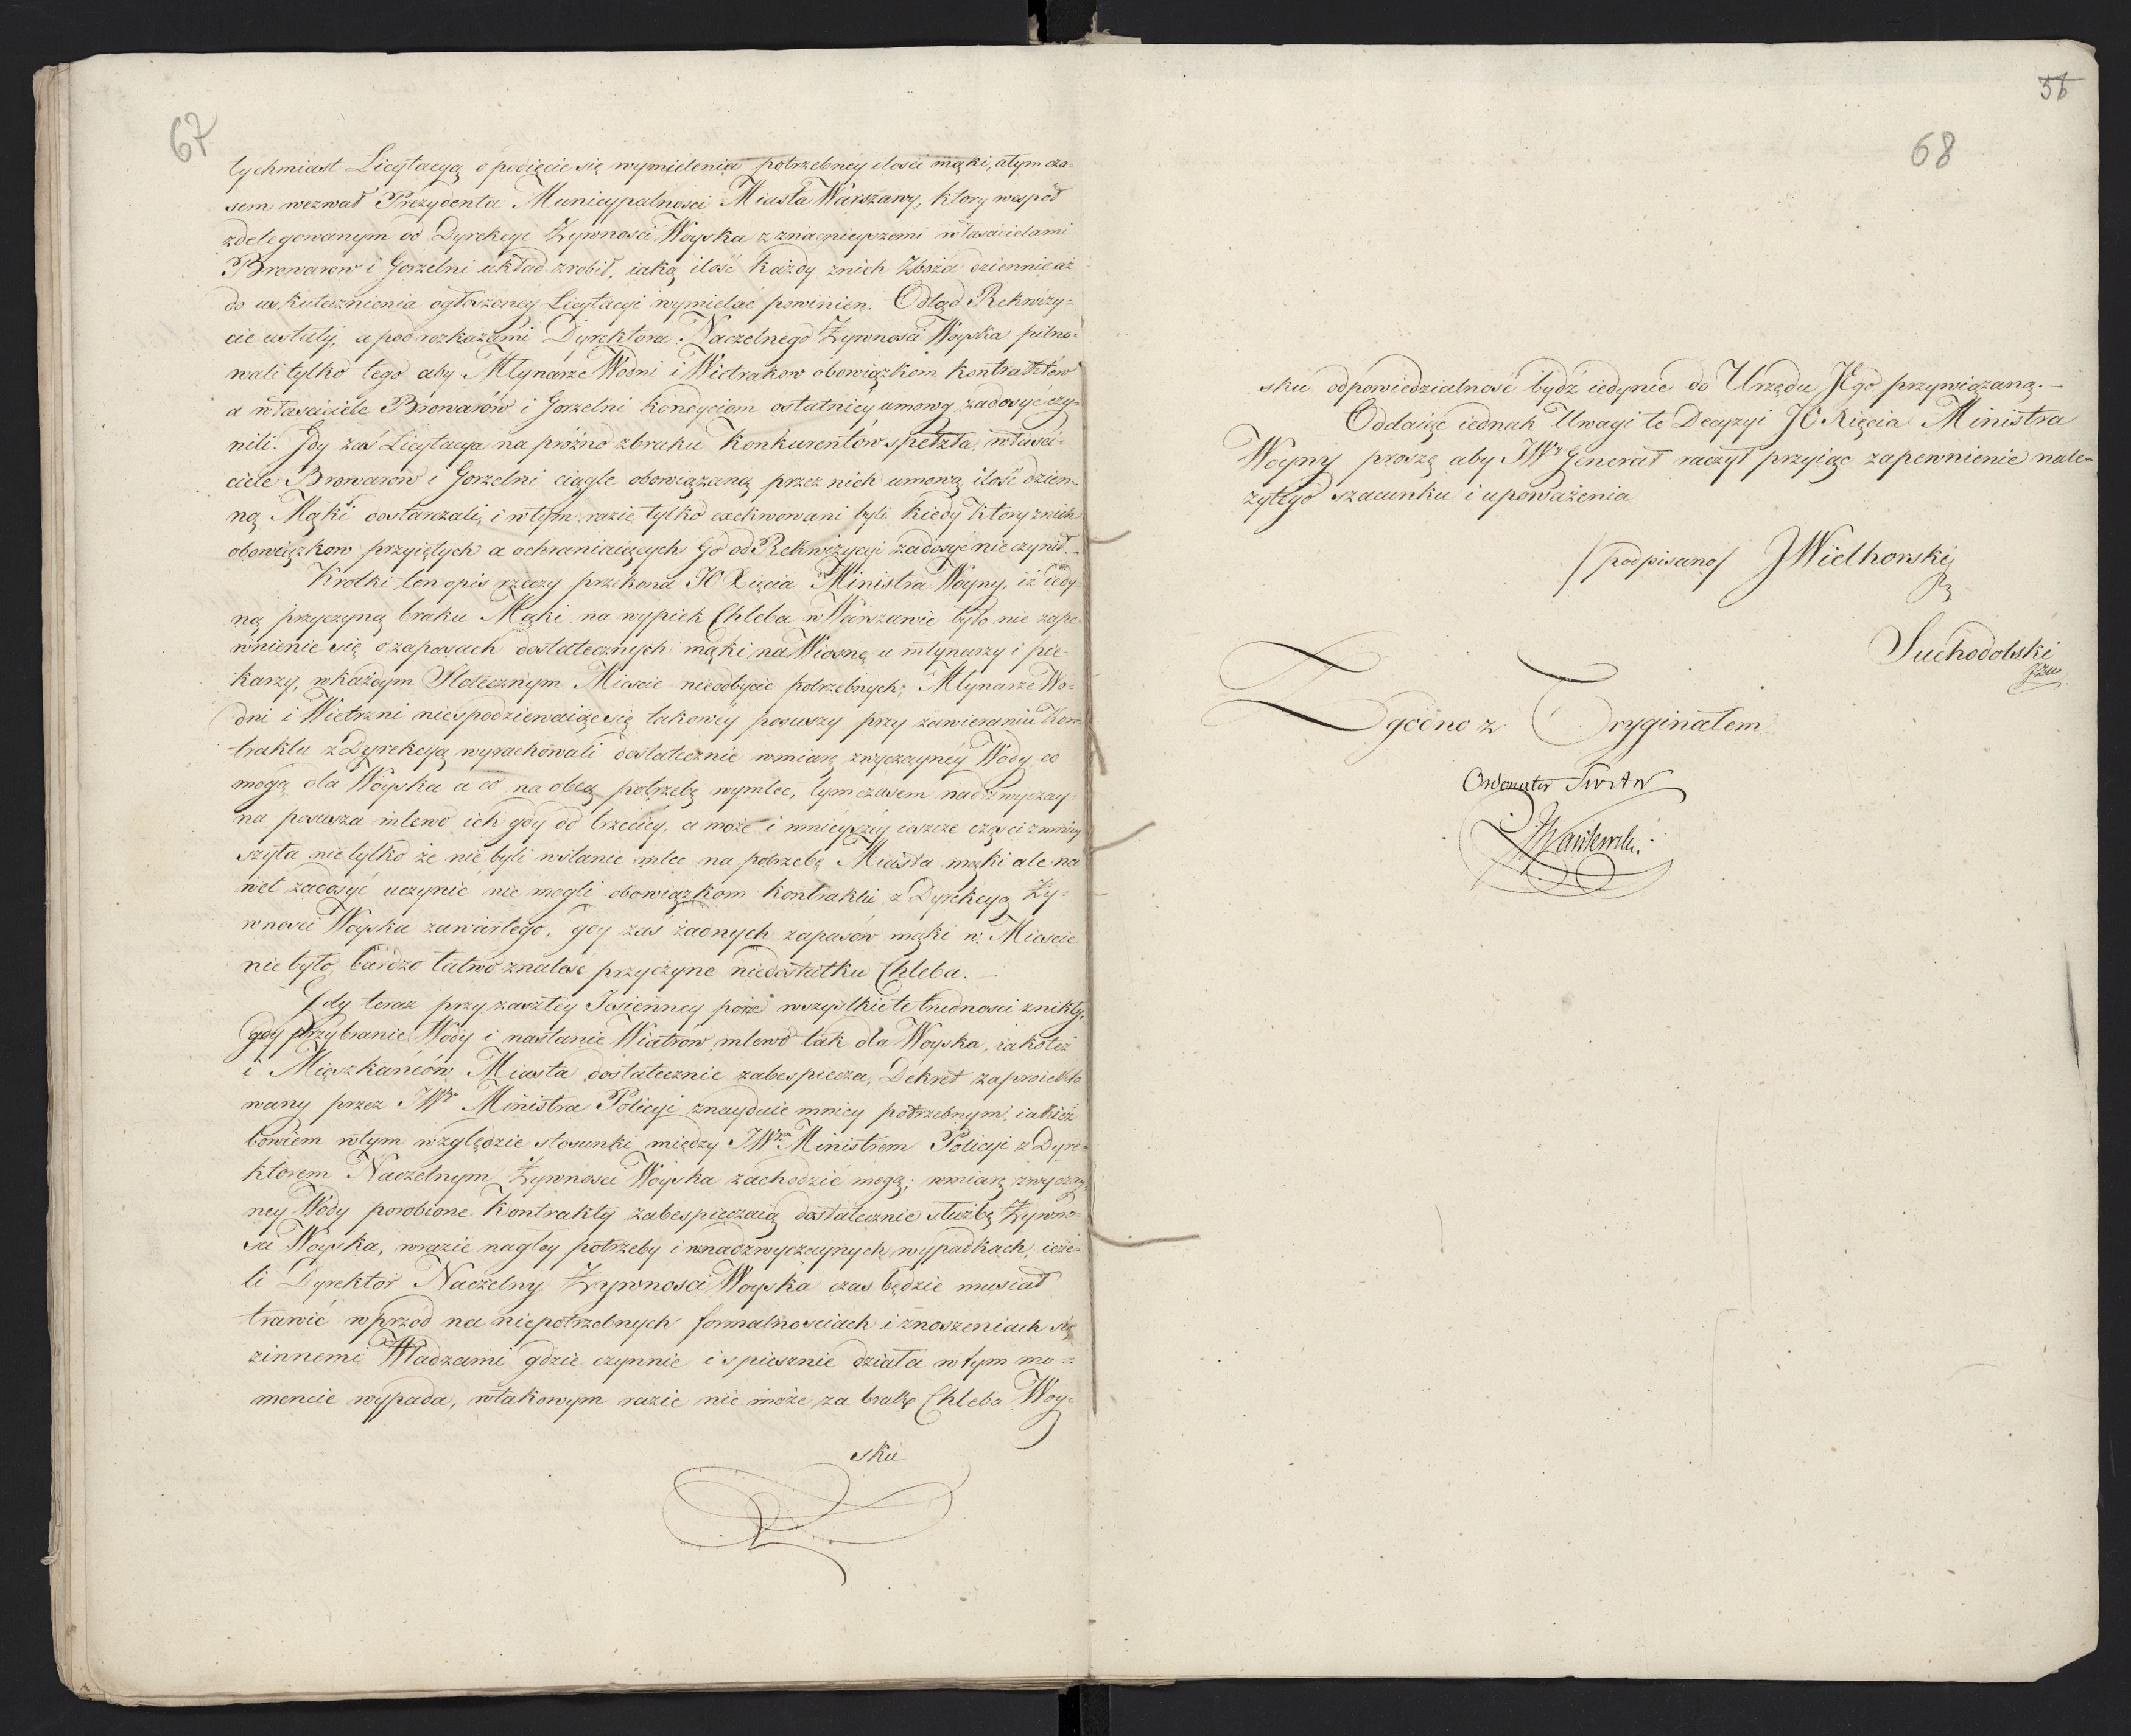 67
tychmiast Licytacyą o podięcie się wymielenia potrzebney ilosci mąki, atym cza=
sem wezwał Prezydenta Municypalnosci Miasta Warszawy, ktory wespoł
zdelegowanym od Dyrekcyi Żywnosci Woyska z znacnieyszemi własścicielami
Browarow i Gorzelni układ zrobił, iaką ilość każdy znich Zboża dziennie aż
do uskutecznienia ogłoszoney Licytacyi wymielać powinien. Odtąd Rekwizy=
cie ustały, a pod rozkazami Dyrektora Naczelnego Żywnosci Woyska pilno=
wali tylko tego aby Młynarze Wodni i Wietrakow obowiązkom Kontraktów
a własciciele Browarów i Gorzelni Kondycyom ostatniey umowy zadosyc czy=
nili. Gdy zaś Licytacya na próżno zbraku Konkurentów spełzła, własci=
ciele Browarow i Gorzelni ciągle obowiązaną przez nich umową ilość dzien=
ną Mąki dostarczali, i wtym razie tylko exekwowani byli kiedy ktory znich
obowiązkow przyiętych a ochraniaiących Go od Rekwizycyi zadosyć nie czynił.
Krotki ten opis rzeczy przekona JO Xięcia Ministra Woyny, iż iedy=
ną przyczyną braku Mąki na wypiek Chleba w Warszawie było nie zape=
wnienie się o zapasach dostatecznych mąki na Wiosnę u młynarzy i pie=
karzy, wkażdym Stołecznym Miescie niedobycie potrzebnych; Młynarze Wo=
dni i Wietrzni niespodziewaiąc się takowéy posuszy przy zawieraniu Kon
traktu z Dyrekcyą wyrachowali dostatecznie wmiarę zwyczaynéy Wody, co
mogą dla Woyska a co na obcą potrzebę wymleć, tymczasem nadzwyczay=
na posusza mlewo ich gdy do trzeciey, a może i mnieyszéy ieszcze częsci zmniey
szyła nie tylko że nie byli wstanie mlec na potrzebę Miasta mąki ale na
wet zadosyć uczynic nie mogli obowiązkom Kontraktu z Dyrekcyą Ży=
wnosci Woyska zawartego, gdy zaś żadnych zapasów mąki w Miescie
nie było, bardzo łatwo znaleść przyczyne niedostatku Chleba.
Gdy teraz przy zaszłey Jesienney porze wszystkie te trudnosci znikły,
gdy Przybranie Wody i nastanie Wiatrów, mlewo tak dla Woyska, iakoteż
i Mieszkańców Miasta dostatecznie zabespiecza, Dekret zaproiekto
wany przez JWo Ministra Policyi znayduie mniey potrzebnym, iakież
bowiem wtym względzie stosunki między JWm Ministrem Policyi z Dyre=
ktorem Naczelnym Żywnosci Woyska zachodzić mogą; wmiarę zwyczay=
ney Wody porobione Kontrakty zabespieczaią dostatecznie służbę Żywno
sci Woyska, wrazie nagłey potrzeby i wnadzwyczaynych wypadkach, ieże=
li Dyrektor Naczelny Żywnosci Woyska czas będzie musiał
trawić wprzód na niepotrzebnych formalnosciach i znoszeniach się
zinnemi Władzami gdzie czynnie i spiesznie działa wtym mo=
mencie wypada, wtakowym razie nie może za brak Chleba Woy=
sku
56
68
sku odpowiedzialność bydź iedynie do Urzędu JEgo przywiązaną.
Oddaiąc iednak Uwagi te Decyzyi JO Xięcia Ministra
Woyny proszę aby JWy Generał raczył przyiąc zapewnienie nale=
żytego szacunku i upoważenia
/podpisano/ JWielhorski
Suchodolski
Zgodno z Oryginałem
Ordonnator